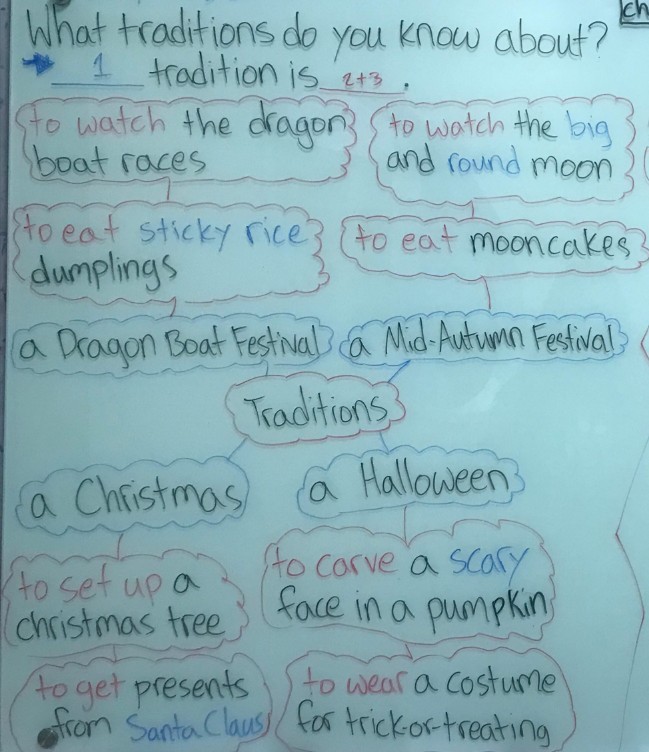 ch
What traditions do you know about?
1 tradition is 2+3.
to watch the dragon
boat races
to watch the big
and round moon
to eat sticky rice
dumplings
to eat mooncakes
a Dragon Boat Festival
a Mid-Autumn Festival
Traditions
a Christmas
a Halloween
to set up a
christmas tree
to carve a scary
face in a pumpkin
to get presents
from Santa Claus
to wear a costume
for trick-or-treating